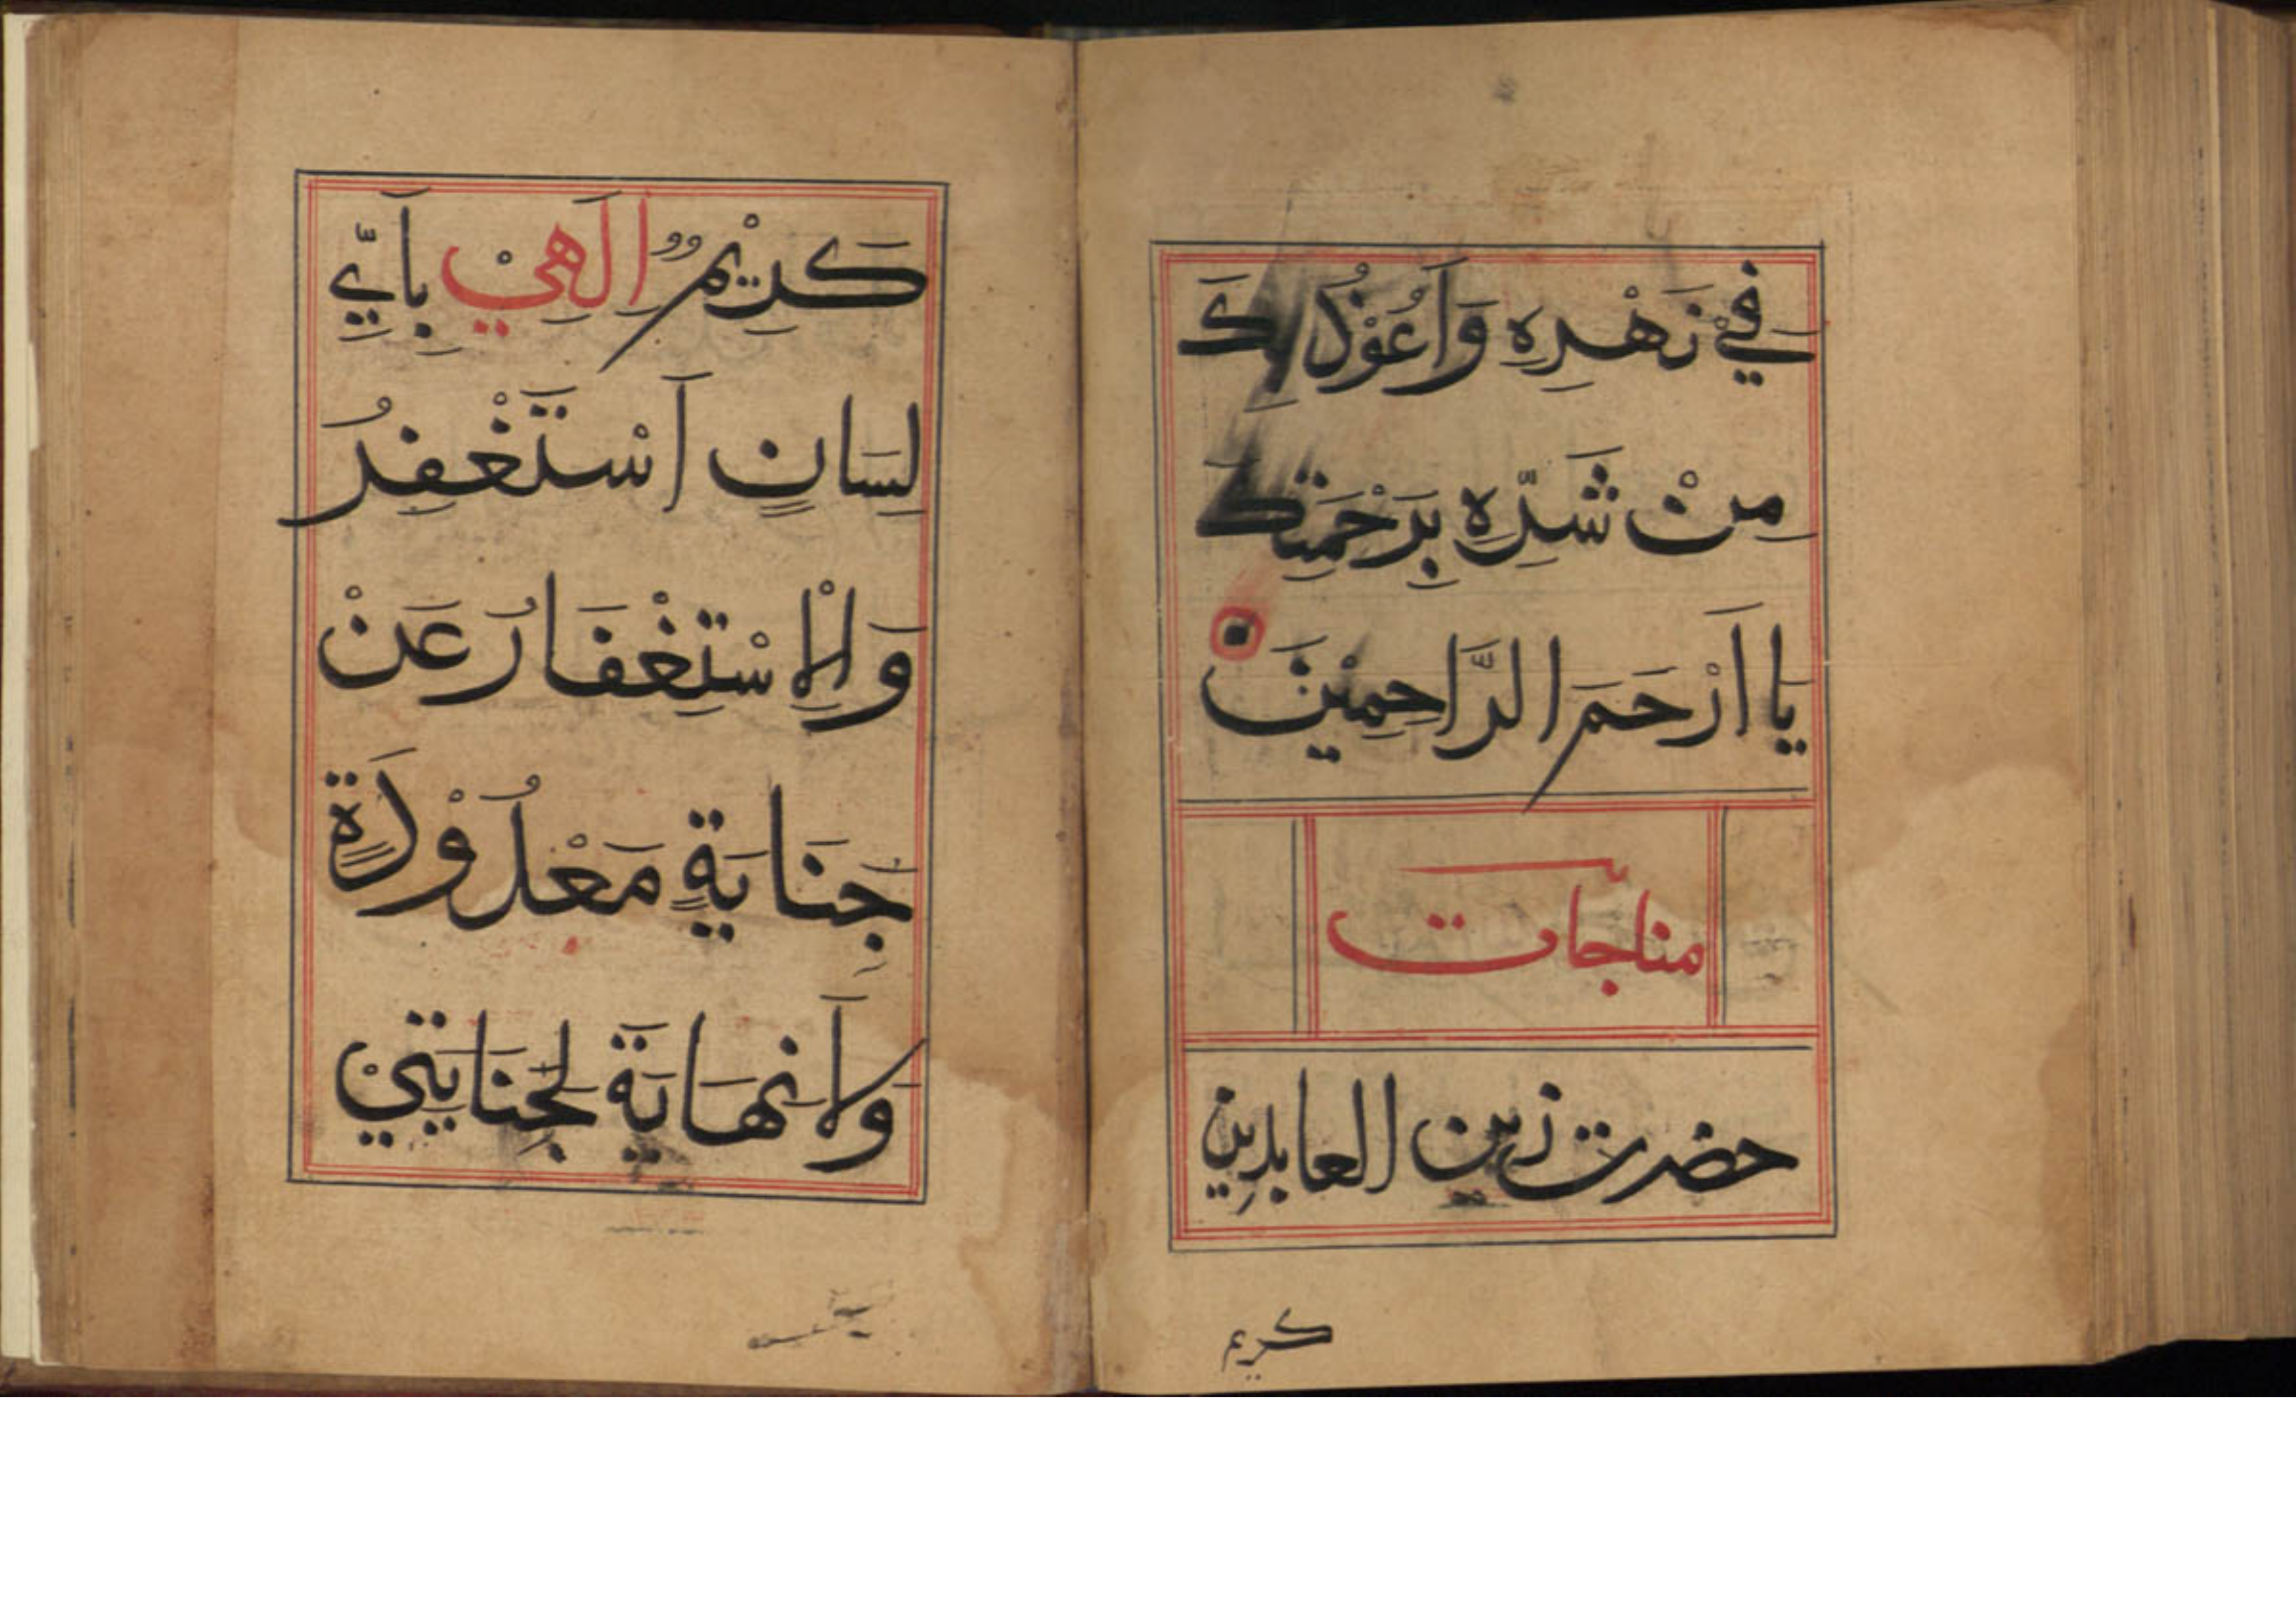 فِيْ نَهْدِهِ وَاَعُوْذُ بِكَ
مِنْ شَدِّهِ بِرَحْمَتِكَ
يَا اَرْحَمَ الرَّاحِمِيْنَ
مناجات
حضرت زين العابدين
كريم
كَرِيْمٌ اِلَهِيْ بِاَيِّ
لِسَانٍ اَسْتَغْفِرُ
وَالْاِسْتِغْفَارُ عَنْ
جِنَايَةٍ مَعْدُوْدَةٍ
وَلَا نِهَايَةَ لِجِنَايَتِيْ